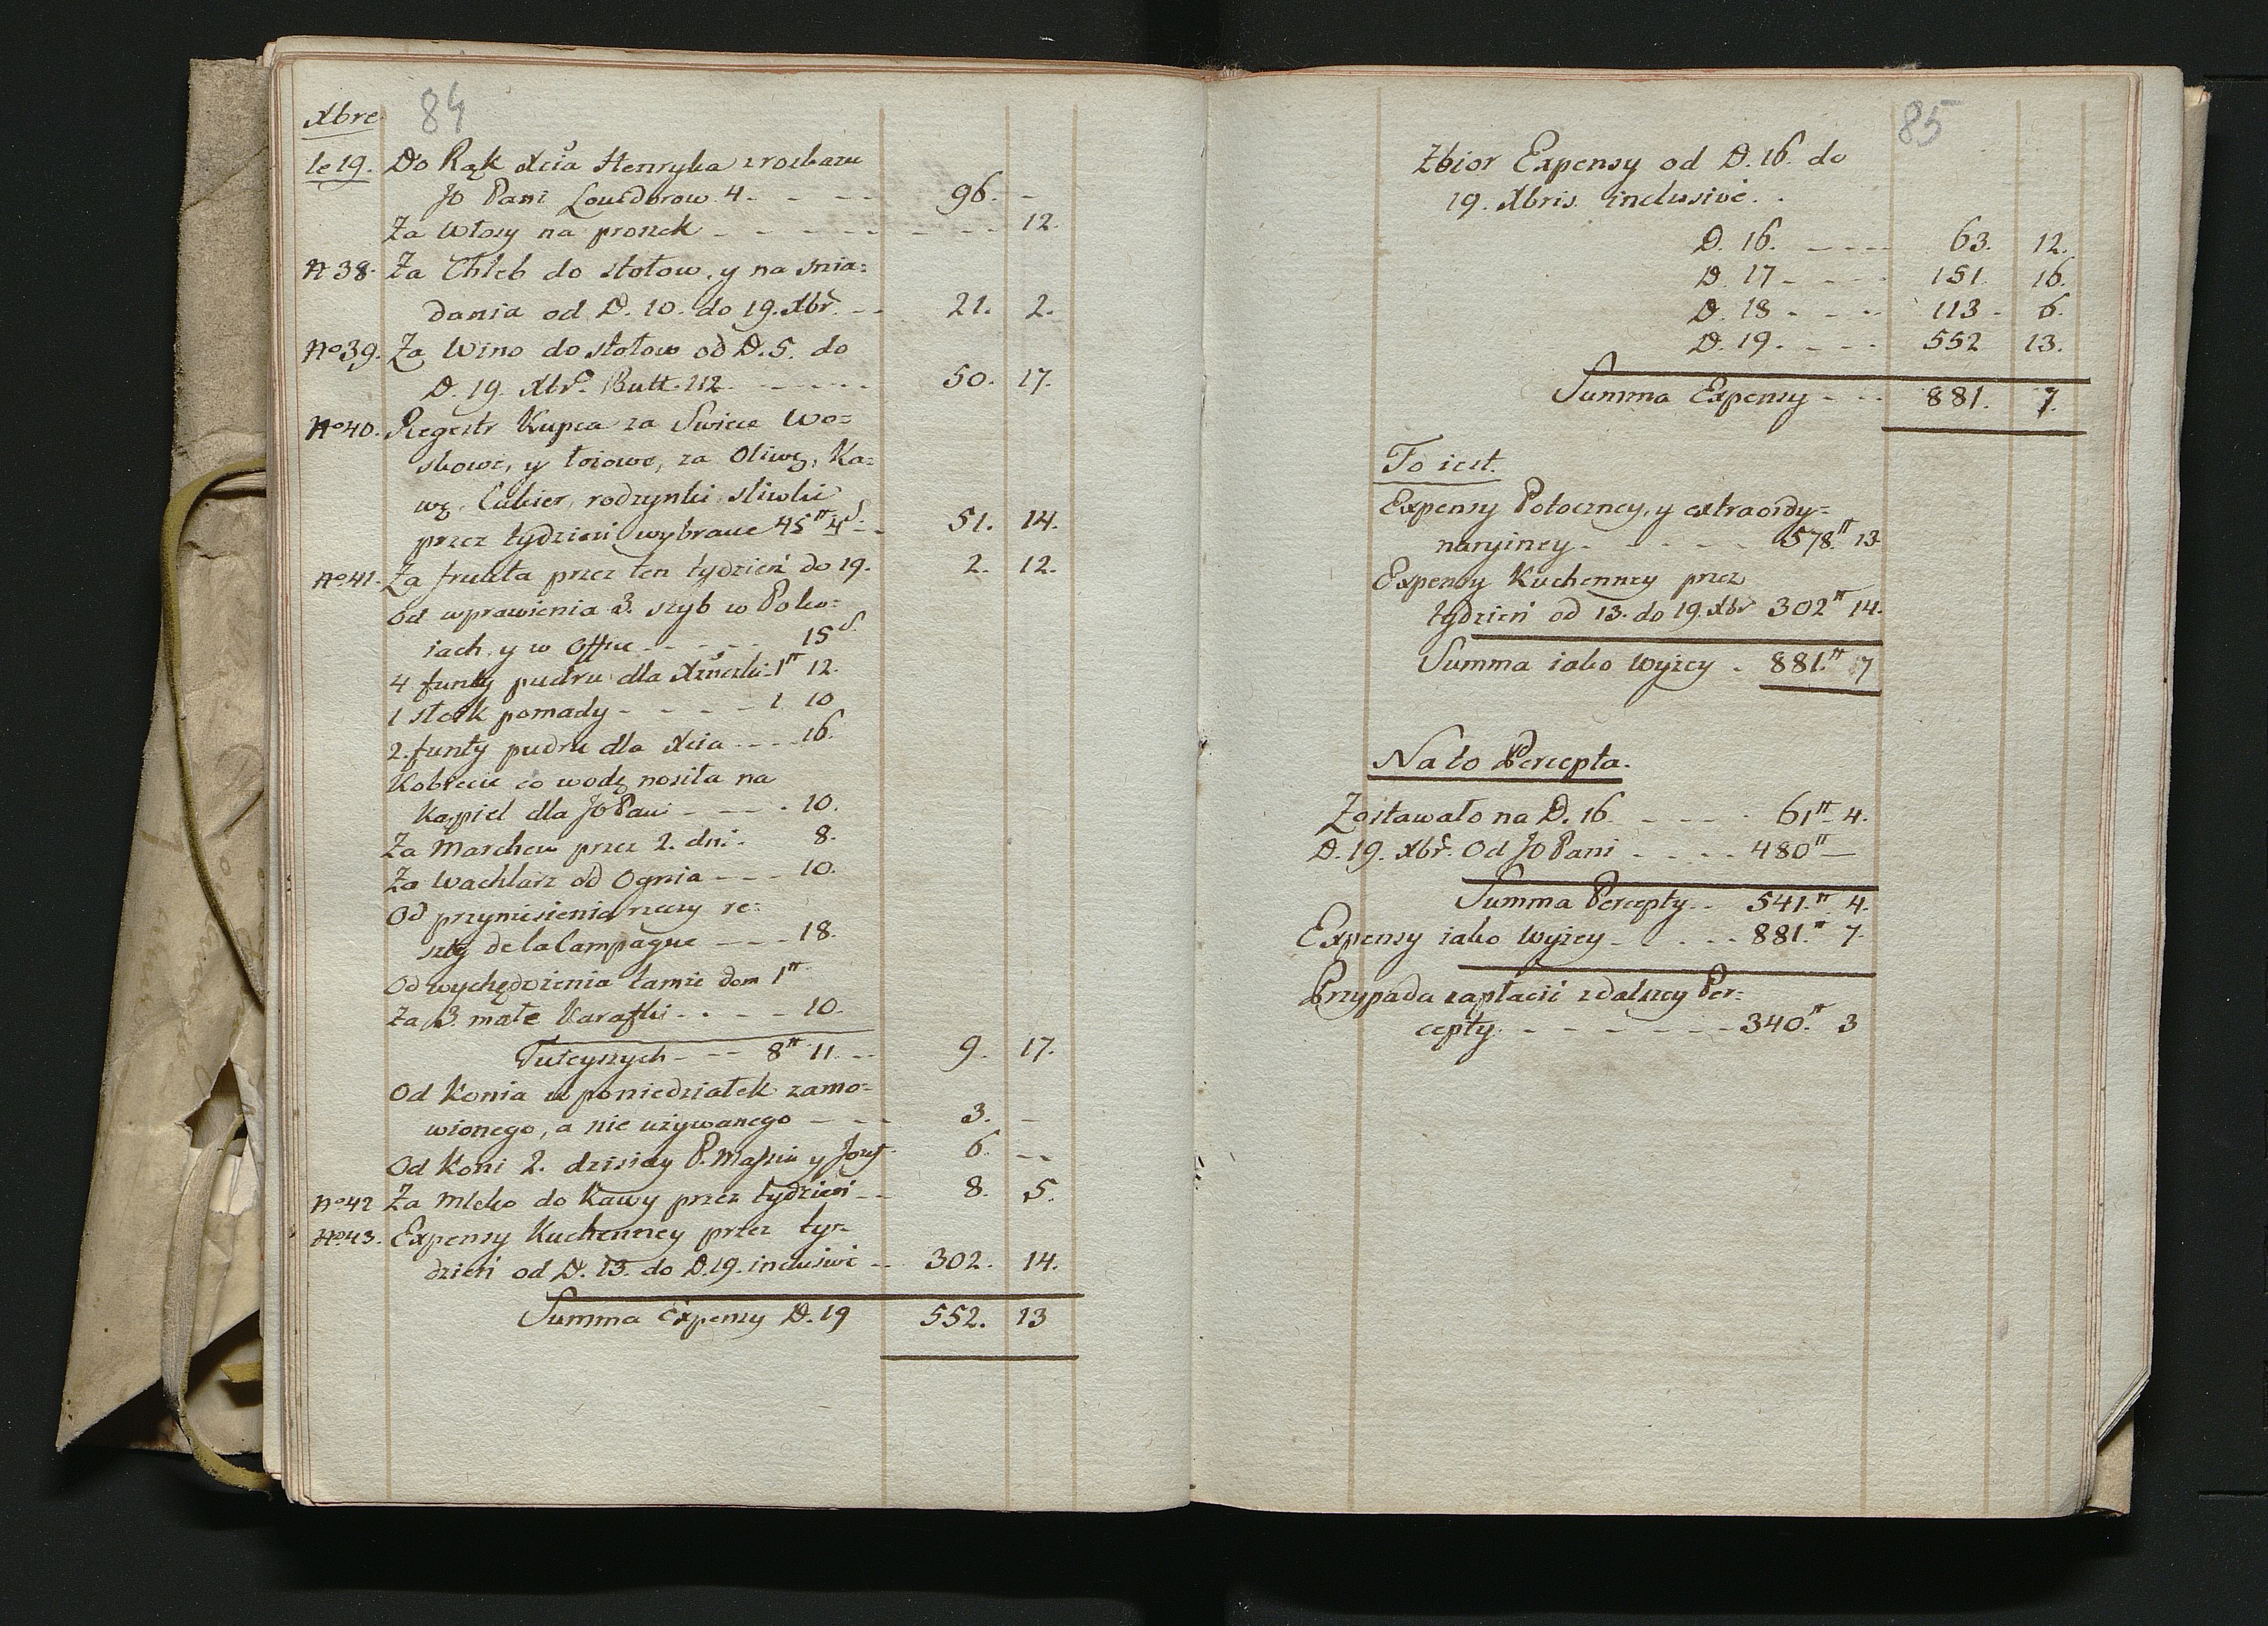 84
Xbre
le 19. Do Rąk Xcia Henryka z roskazu
JO Pani Louidorow 4. - - - 96. -
Za Włosy na proszek - - - - - - - 12.
N 38. Za Chleb do stołow, y na snia=
dania od D. 10. do 19. Xbr. - - 21. 2.
No 39. Za Wino do stołow od D. 5. do
D. 19. Xbr. Butt. 112. - - - - - 50. 17.
No 40. Regestr Kupca za Swiece Wo=
skowe, y łoiowe, za Oliwę, Ka=
wę, Cukier, rodzynki śliwki
przez tydzień wybrane 45tt 4s - - 51. 14.
No 41. Za frukta przez ten tydzień do 19. 2. 12.
Od wprawienia 3. szyb w Poko=
iach y w Offic - - - - 15s.
4 funty pudru dla Xzniczki - 1tt 12.
1 słoik pomady - - - - 1. 10
2. funty pudru dla Xcia - - - - 16.
Kobiecie co wodę nosiła na
Kąpiel dla JO Pani - - - 10.
Za Marchew przez 2. dni. 8.
Za Wachlarz od Ognia - - - 10.
Od przyniesienia rzeczy re=
szty de la Campagne - - - 18.
Od wychędożenia tamże dom 1tt
Za 3. małe Karafki - . - - 10.
Tuteyszych - - - 8tt 11. - - 9. 17.
Od Konia w poniedziałek zamo=
wionego, a nie używanego - - - 3. -
Od Koni 2. dzisiay P. Massiu y Jozef 6. - -
No 42 Za Mleko do Kawy przez tydzień - - 8. 5.
No 43. Expensy Kuchenney przez ty=
dzień od D. 13. do D. 19. inclusivè - - 302. 14.
Summa Expensy D. 19 552. 13
85
Zbior Expensy od D. 16. do
19. Xbris. inclusivè. .
D. 16. - - - - 63. 12.
D. 17 - - - - 151. 16.
D. 18 - - - - 113 - 6.
D. 19. - - - - 552 13.
Summa Expensy - - - 881. 7.
To iest.
Expensy Potoczney, y extraordy=
naryiney - - - - - - 578.tt 13.
Expensy Kuchenney przez
tydzień od 13. do 19. Xbr 302tt 14.
Summa iako Wyżey . 881.tt 7
Na to Percepta.
Zostawało na D. 16. - - - - 61tt 4.
D. 19. Xbr. Od JO Pani - - - - 480tt -
Summa Percepty. - 541.tt 4.
Expensy iako Wyżey - - . - - 881.tt 7.
Przypada zapłacić z dalszey Per=
cepty. - - - - - - - - 340.tt 3